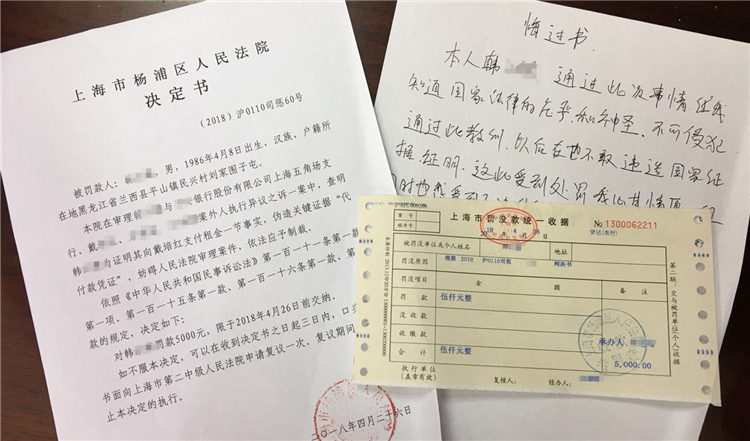 上海市杨浦区人民法院
决定书
（2018）沪0110司惩60号
被罚款人：
，男，1986年4月8日出生，汉族，户籍所
在地黑龙江省兰西县平山镇民兴村刘家围子屯。
本院在审理戴
与
银行股份有限公司上海五角场支
行、戴
案外人执行异议之诉一案中，查明
韩
为证明其向戴培红支付租金一节事实，伪造关键证据“代
付款凭证”，妨碍人民法院审理案件，依法应于制裁。
依照《中华人民共和国民事诉讼法》第一百一十一条第一款
第一项、第一百一十五条第一款、第一百一十六条第一款、第
款的规定，决定如下：
对韩
罚款5000元，限于2018年4月26日前交纳。
如不服本决定，可以在收到决定书之日起三日内，口
书面向上海市第二中级人民法院申请复议一次。复议期间
止本决定的执行。
二〇一八年四月二十六日
悔过书.
本人韩
通过此次事情
知道国家法律的
和神圣.不可侵犯.
通过此教训.以后在也不敢违造国家证
据证明.
受到处罚
上海市罚没款统一收据
18 年 4 月
No 1300062211
登记(农行)
被罚没单位或个人姓名
地址
罚没原因
根据 2018 沪0110司惩
判决书
罚没项目
金额
备注
罚 款
伍仟元整
没收款
收缴款
合计
伍仟元整
承办人：
5,000.00
执行单位
（盖章有效）
复核人：
经办人：
第二联：交与被罚单位（个人）收据